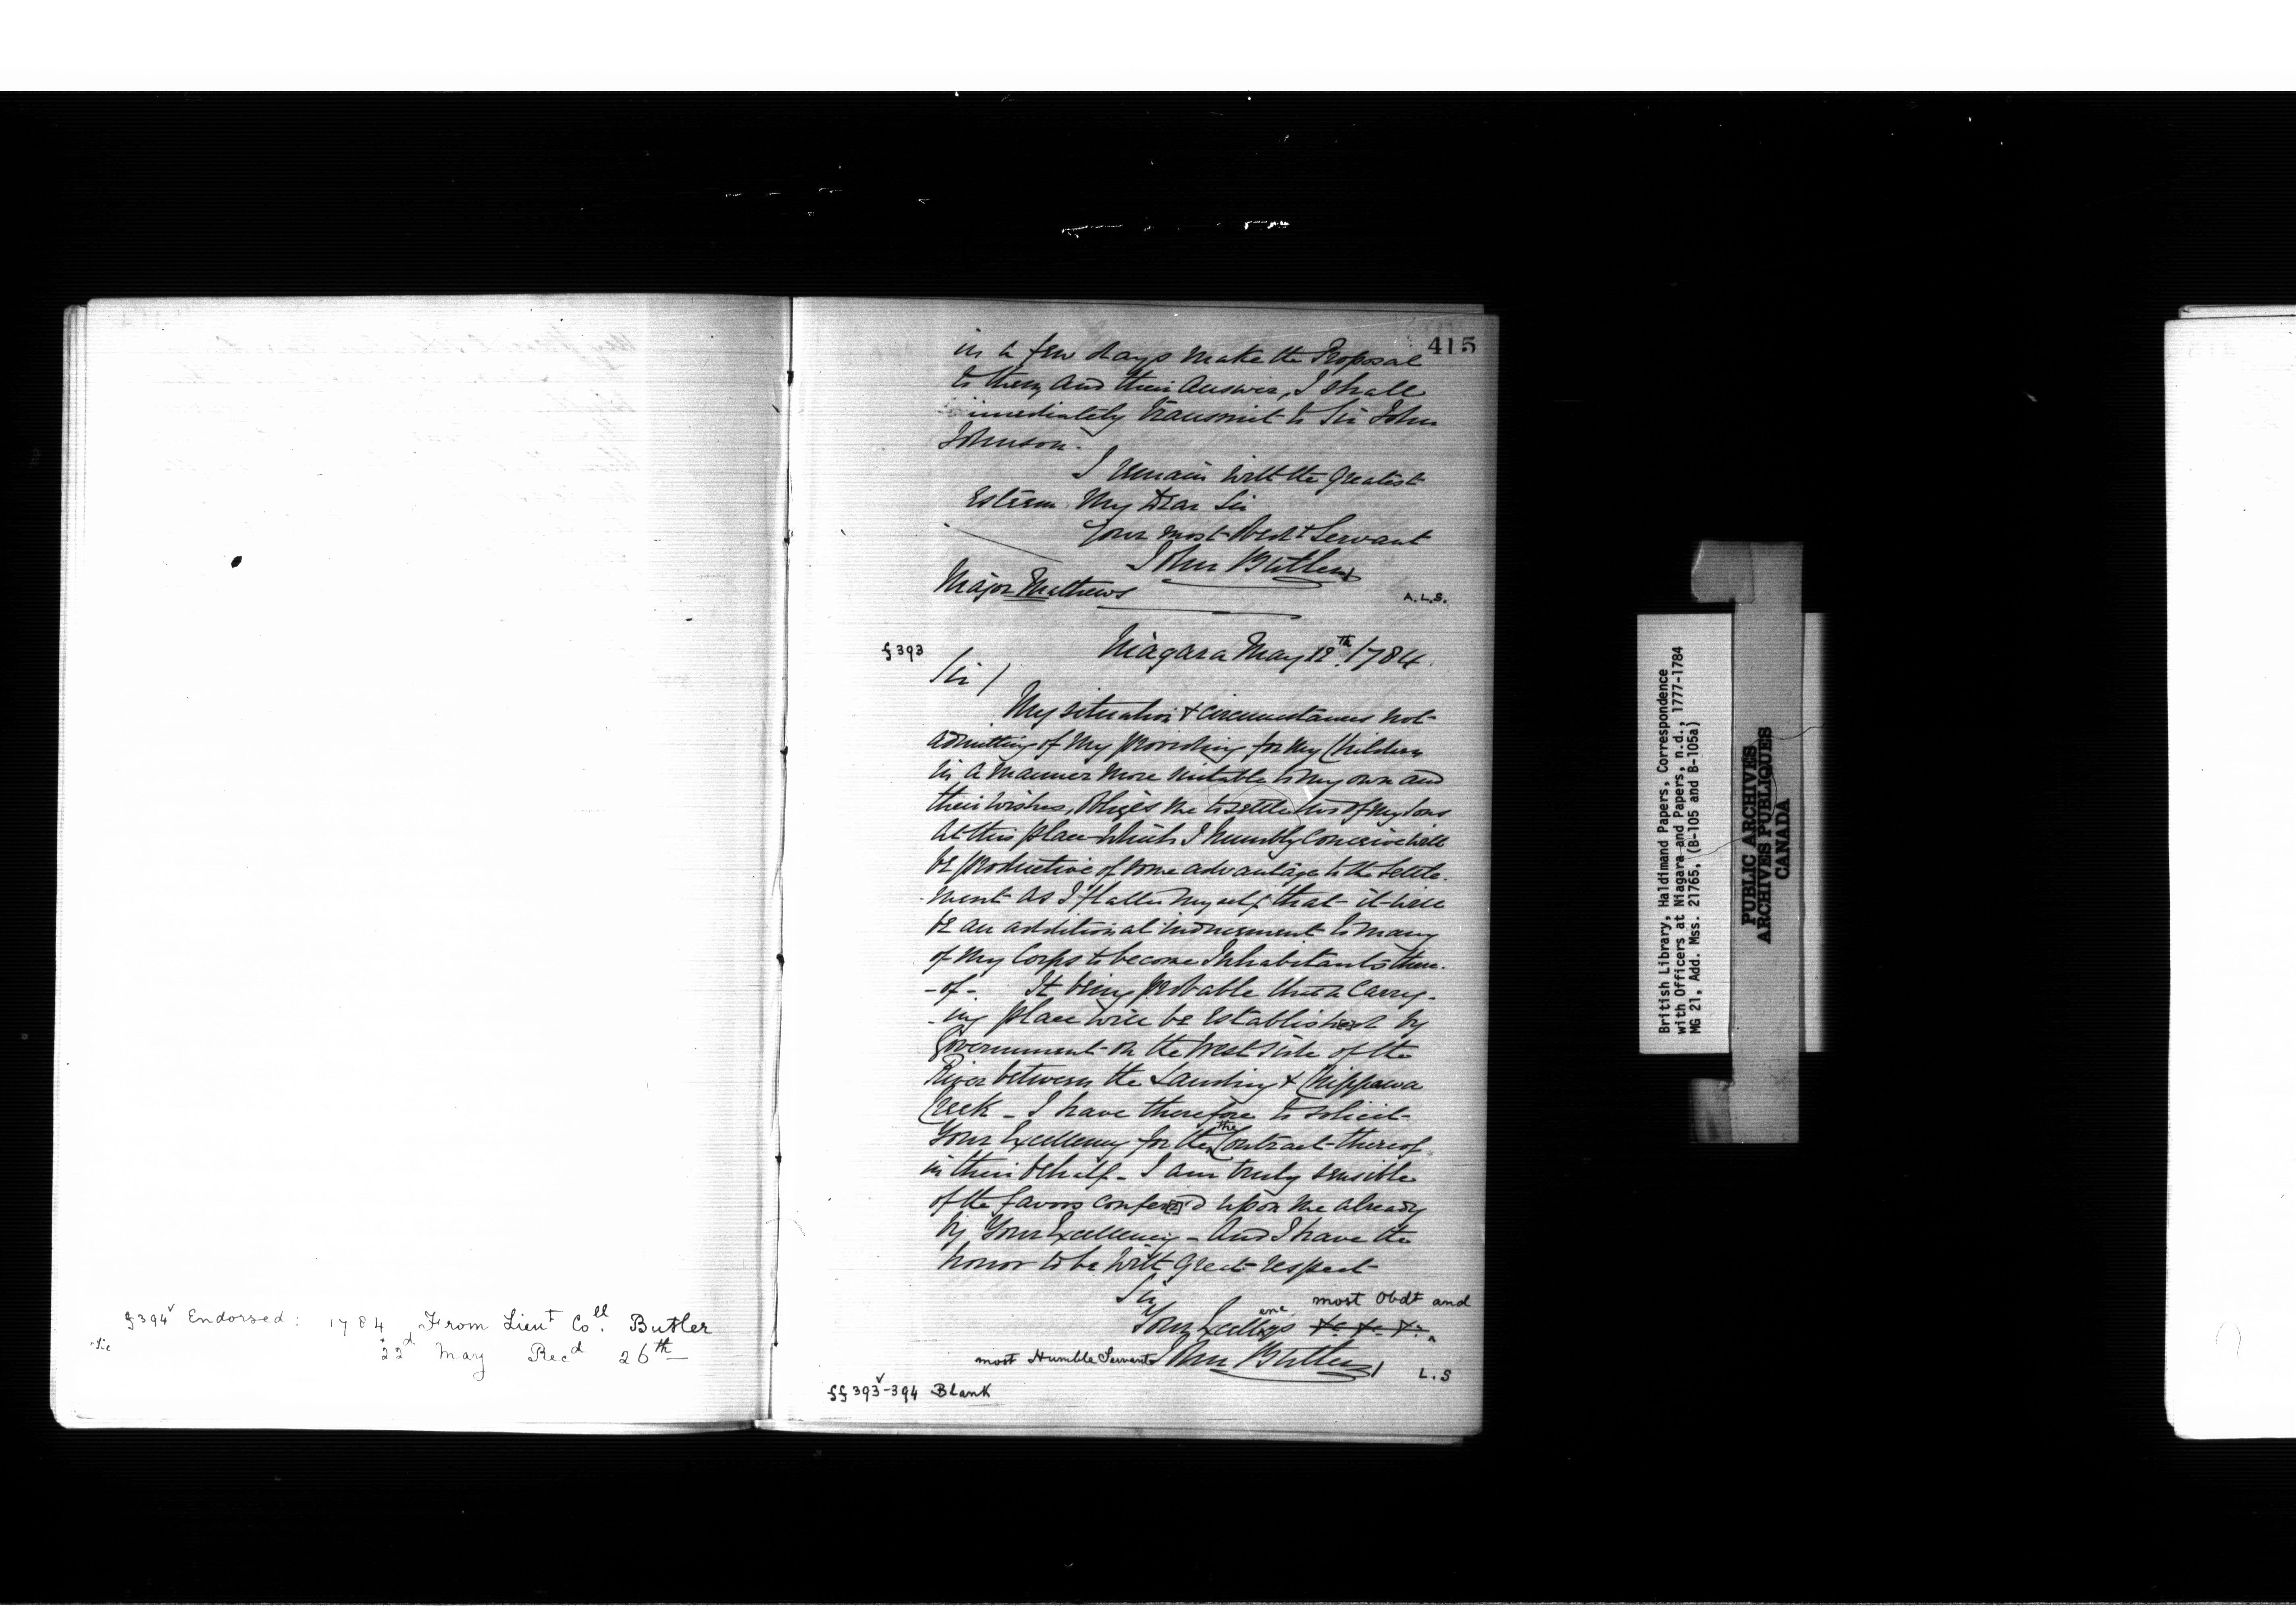 f394v Endorsed: 1784 From Lieut Coll. Butler
sic 22d May Recd 26th
415
in a few days make the Proposal
to them, and their Answer, I shall
imediately transmit to Sir John
Johnson.
I remain with the greatest
Esteem My Dear Sir
Your most Obedt Servant
John Butler
Major Mathews
A.L.S.
f393
Niagara May 12th 1784.
Sir /
My situation & circumstances not
admitting of my providing for my Children
in a manner more suitable to my own and
their wishes, obliges me to settle two of my sons
at this place which I humbly conceive will
be productive of some advantage to the settle-
-ment as I flatter myself that it will
be an additional inducement to many
of my Corps to become Inhabitants there-
-of- It being probable that a Carry-
-ing place will be established by
Government on the West Side of the
River between the Landing & Chippawa
Creek - I have therefore to solicit
Your Excellency for the Contract thereof
in their behalf - I am truly sensible
of the favors confer[r]'d upon me already
by Your Excellency - And I have the
honor to be with great respect
Sir
Your Excellency's &c. &c. &c. most Obdt and
most Humble Servant John Butler
L.S
ff 393v-394 Blank
British Library, Haldimand Papers, Correspondence
with Officers at Niagara and Papers, n.d., 1777-1784
MG 21, Add. Mss. 21765, (B-105 and B-105a)
PUBLIC ARCHIVES
ARCHIVES PUBLIQUES
CANADA